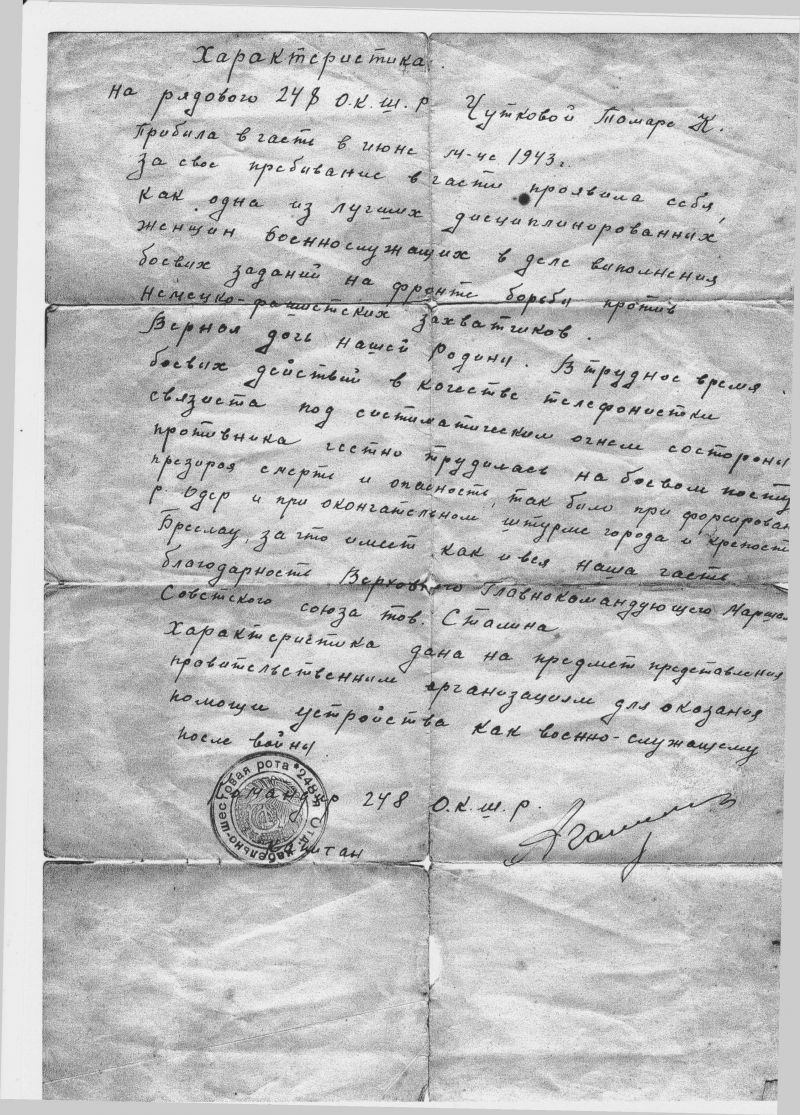 Характеристика.
на рядового 248 О.К.Ш.Р. Чутковой Тамаре К.
Прибила в часть в июне м-це 1943 г.
За свое пребивание в части проявила себя,
как одна из лучших дисциплинированных
женщин военнослужащих в деле виполнения
боевих заданий на фронте борьби против
немецко-фашистских захватчиков.
Верная дочь нашей Родини. В трудное время
боевих действий в качестве телефонистки
связиста под систиматическим огнем со сторони
противника честно трудилась на боевом посту
презирая смерть и опасность, так било при форсирован
р. Одер и при окончательном штурме города и крепости
Бреслау, за что имеет как и вся наша часть
благодарность Верховного Главнокомандующего Маршал
Советского союза тов. Сталина.
Характеристика дана на предмет представления
правительственним организациям для оказания
помощи устройства как военно-служащему
после войни
Командир 248 О.К.Ш.Р.
Капитан
248-я Отд. кабельно-шестовая рота